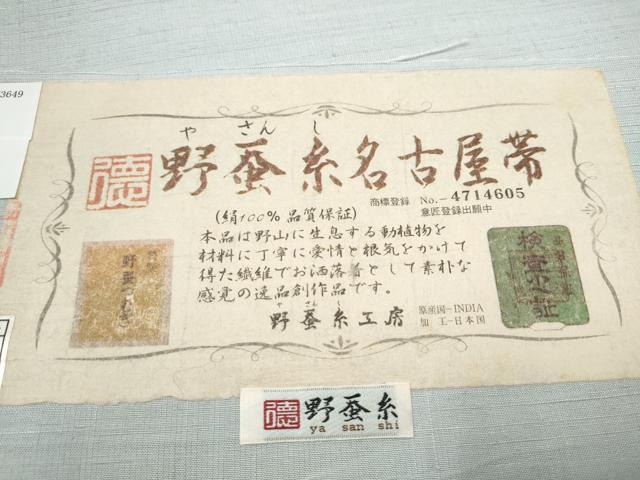 3649
やさんし
德 野蚕糸名古屋帯
商標登録 No.-4714605
意匠登録出願中
(絹100% 品質保証)
本品は野山に生息する動植物を
材料に丁寧に愛情と根気をかけて
得た繊維でお洒落着として素朴な
感覚の逸品創作品です。
さんし
野蚕糸工房
原産国-INDIA
加工-日本国
野蚕
検査之証
德 野蚕糸
ya san shi